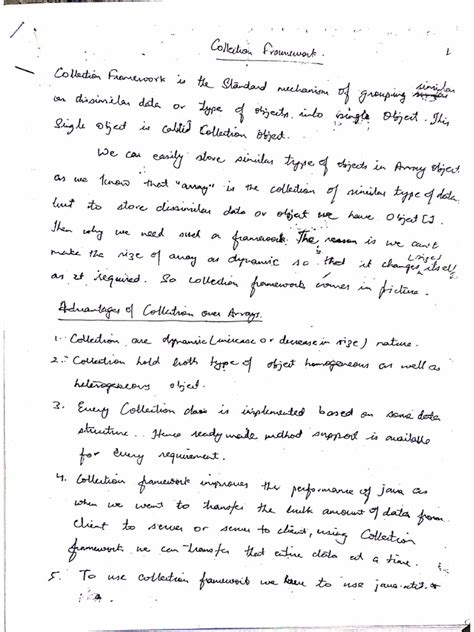 Collection Framework.
1
Collection Framework is the Standard mechanism of grouping similar
or dissimilar data or type of objects into single Object. This
Single Object is called Collection Object.
We can easily store similar type of objects in Array Object
as we know that "array" is the collection of similar type of data
but to store dissimilar data or object we have Object [].
Then why we need such a framework. The reason is we can't
make the size of array as dynamic so that it changes (size) itself
as it required. So collection framework comes in picture.
Advantages of Collection over Arrays.
1. Collection are dynamic (increase or decrease in size) nature.
2. Collection hold both type of object homogeneous as well as
heterogeneous object.
3. Every Collection class is implemented based on some data
structure. Hence ready made method support is available
for every requirement.
4. Collection framework improves the performance of java as
when we want to transfer the bulk amount of data from
client to server or server to client, using Collection
framework we can transfer that entire data at a time.
5. To use collection framework we have to use java.util.